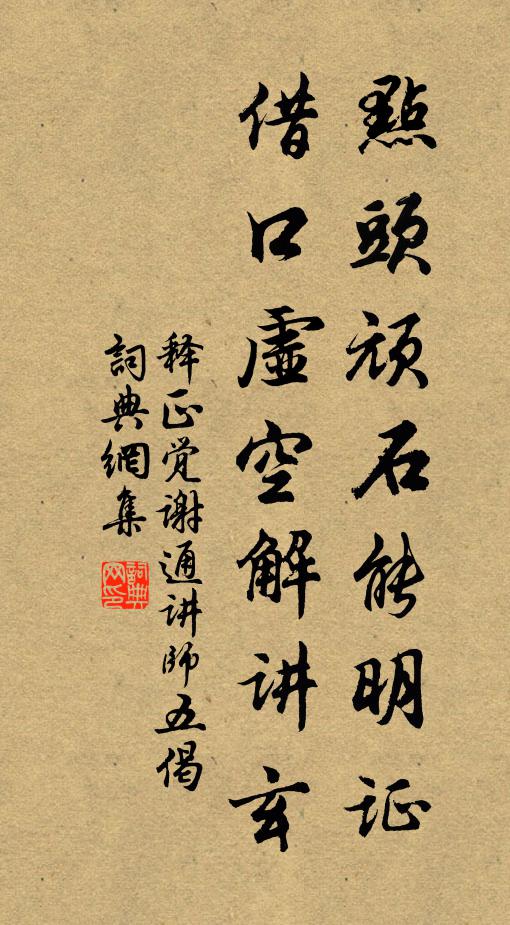 點頭頑石能明证
借口虛空解讲玄
释正觉谢通讲师五偈
詞典網集
詞典网印